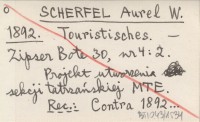 o
SCHERFEL Aurel W.
1892. Touristisches. —
Zipser Bote 30, nr 4: 2.
Projekt utworzenia
sekcji tatrzańskiej MTE.
Rec.: Contra 1892...